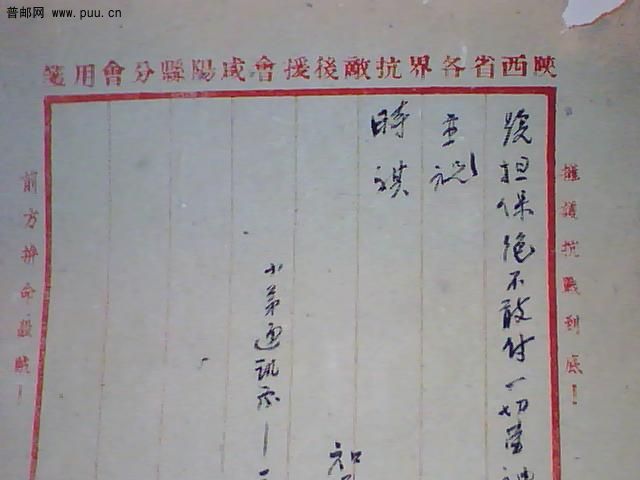 普邮网 www.puu.cn
陝西省各界抗敵後援會咸陽縣分會用箋
擁護抗戰到底！
號担保絕不敢付一切
並祝
時祺
知
小弟通訊處—
前方拚命殺賊！